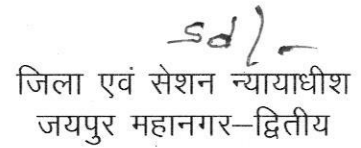 sd/-
जिला एवं सेशन न्यायाधीश
जयपुर महानगर–द्वितीय